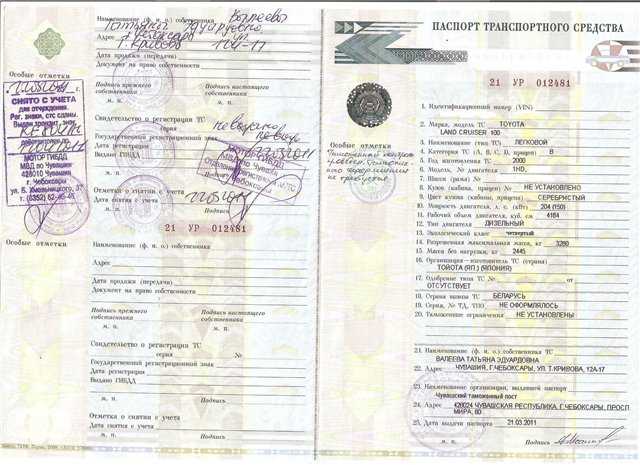 Особые отметки
22.05.2011
СНЯТО С УЧЕТА
для отчуждения.
Рег. знаки, стс сданы.
Выдан транзит. знак
МОТОР ГИБДД
МВД по Чувашии
428010 Чувашия
г. Чебоксары
ул. Б. Хмельницкого, 37
Наименование (ф. и. о.) собственника Валеева
Татьяна Эдуардовна
Адрес г. Чебоксары ул.
Т. Кривова 12А-17
Дата продажи (передачи)
Документ на право собственности
Подпись прежнего собственника
Подпись настоящего собственника
м. п.
м. п.
Свидетельство о регистрации ТС
серия
№
Государственный регистрационный знак
Дата регистрации
Выдано ГИБДД
МВД по Чувашии
г. Чебоксары
м. п.
Подпись
Отметка о снятии с учета
Дата снятия с учета 22.05.2011
м. п.
Подпись
21 УР 012481
Особые отметки
Наименование (ф. и. о.) собственника
Адрес
Дата продажи (передачи)
Документ на право собственности
Подпись прежнего собственника
Подпись настоящего собственника
м. п.
м. п.
Свидетельство о регистрации ТС
серия
№
Государственный регистрационный знак
Дата регистрации
Выдано ГИБДД
м. п.
Подпись
Отметка о снятии с учета
Дата снятия с учета
м. п.
Подпись
ПАСПОРТ ТРАНСПОРТНОГО СРЕДСТВА
21 УР 012481
Особые отметки
1. Идентификационный номер (VIN)
2. Марка, модель ТС TOYOTA
LAND CRUISER 100
3. Наименование (тип ТС) ЛЕГКОВОЙ
4. Категория ТС (А, В, С, D, прицеп) B
5. Год изготовления ТС 2000
6. Модель, № двигателя 1HD,
7. Шасси (рама) №
8. Кузов (кабина, прицеп) № НЕ УСТАНОВЛЕНО
9. Цвет кузова (кабины, прицепа) СЕРЕБРИСТЫЙ
10. Мощность двигателя, л. с. (кВт) 204 (150)
11. Рабочий объем двигателя, куб. см 4164
12. Тип двигателя ДИЗЕЛЬНЫЙ
13. Экологический класс четвертый
14. Разрешенная максимальная масса, кг 3260
15. Масса без нагрузки, кг 2445
16. Организация – изготовитель ТС (страна)
ТОЙОТА (ЯП.) (ЯПОНИЯ)
17. Одобрение типа ТС № от
ОТСУТСТВУЕТ
18. Страна вывоза ТС БЕЛАРУСЬ
19. Серия, № ТД, ТПО НЕ ОФОРМЛЯЛОСЬ
20. Таможенные ограничения НЕ УСТАНОВЛЕНЫ
21. Наименование (ф. и. о.) собственника ТС
ВАЛЕЕВА ТАТЬЯНА ЭДУАРДОВНА
22. Адрес ЧУВАШИЯ, Г.ЧЕБОКСАРЫ, УЛ. Т.КРИВОВА, 12А-17
23. Наименование организации, выдавшей паспорт
Чувашский таможенный пост
24. Адрес 428024 ЧУВАШСКАЯ РЕСПУБЛИКА, Г.ЧЕБОКСАРЫ, ПРОСП
МИРА, 80
25. Дата выдачи паспорта 21.03.2011
М. П. Подпись